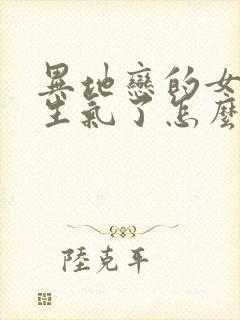 異地戀的女
生氣了怎麼
陸克平